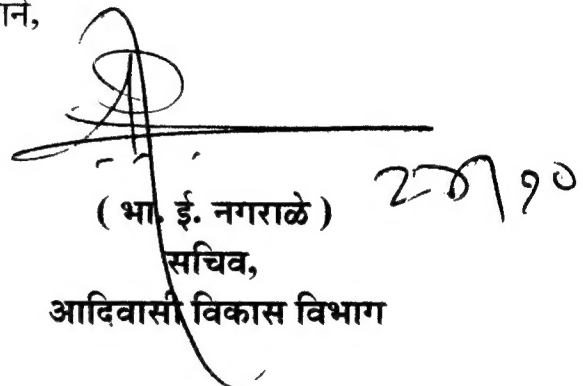 ाने,
( भा. ई. नगराळे )
सचिव,
आदिवासी विकास विभाग